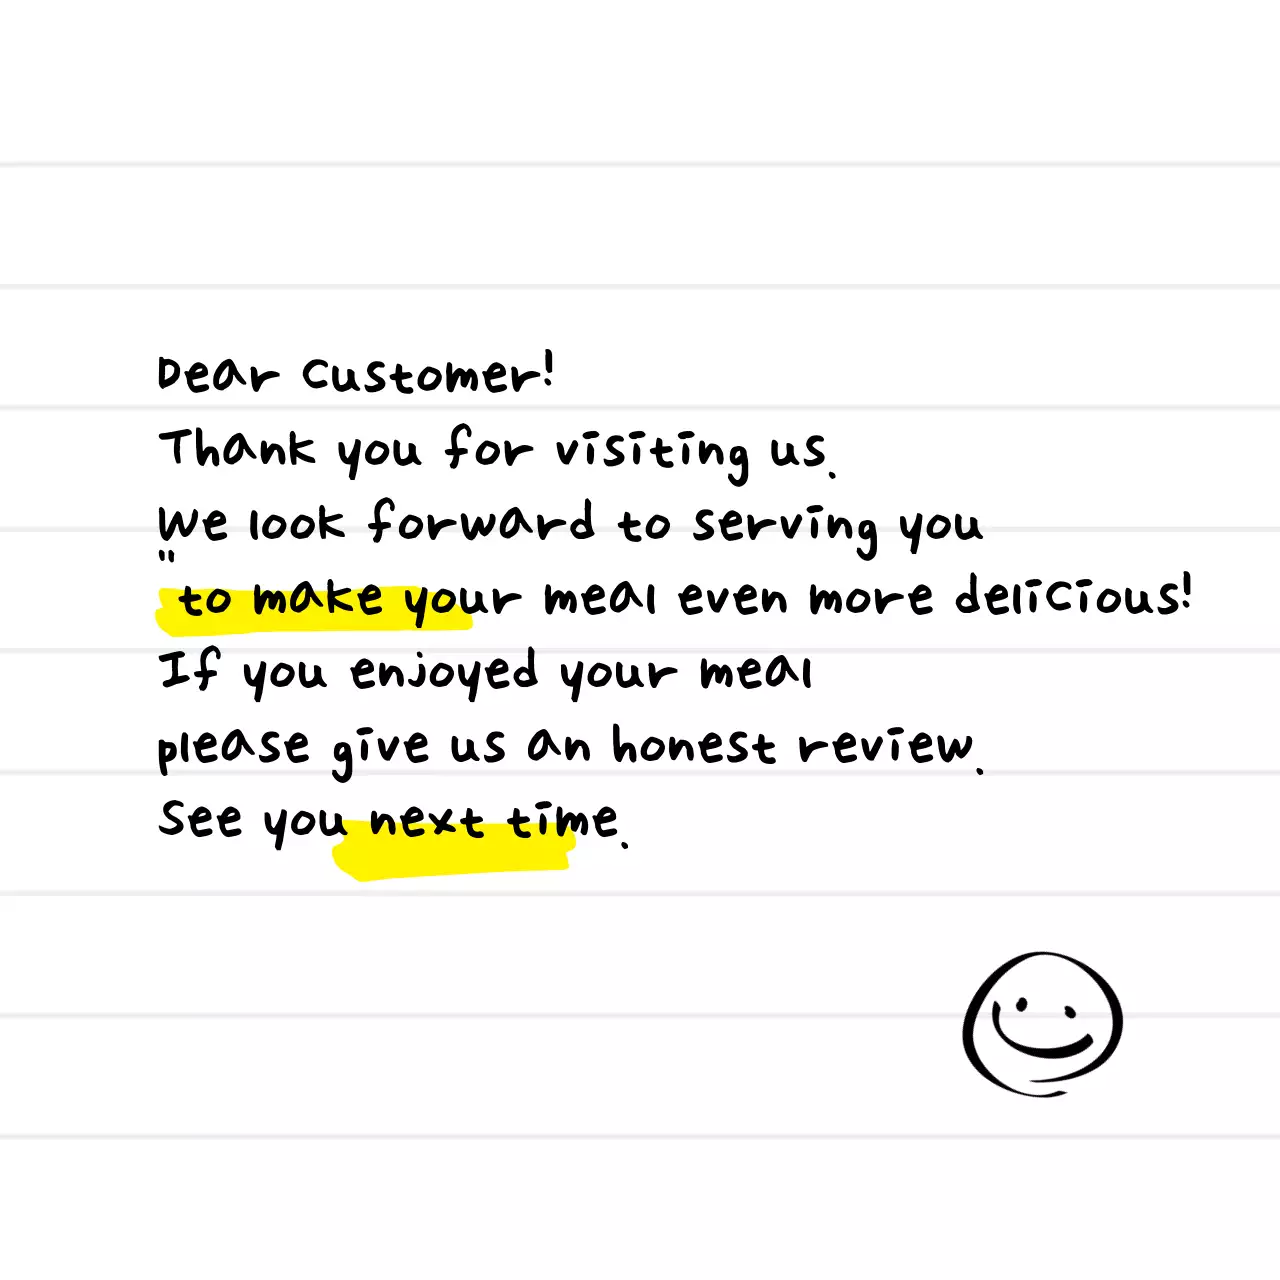 Dear Customer!
Thank you for visiting us.
We look forward to serving you
"to make your meal even more delicious!
If you enjoyed your meal
please give us an honest review.
See you next time.